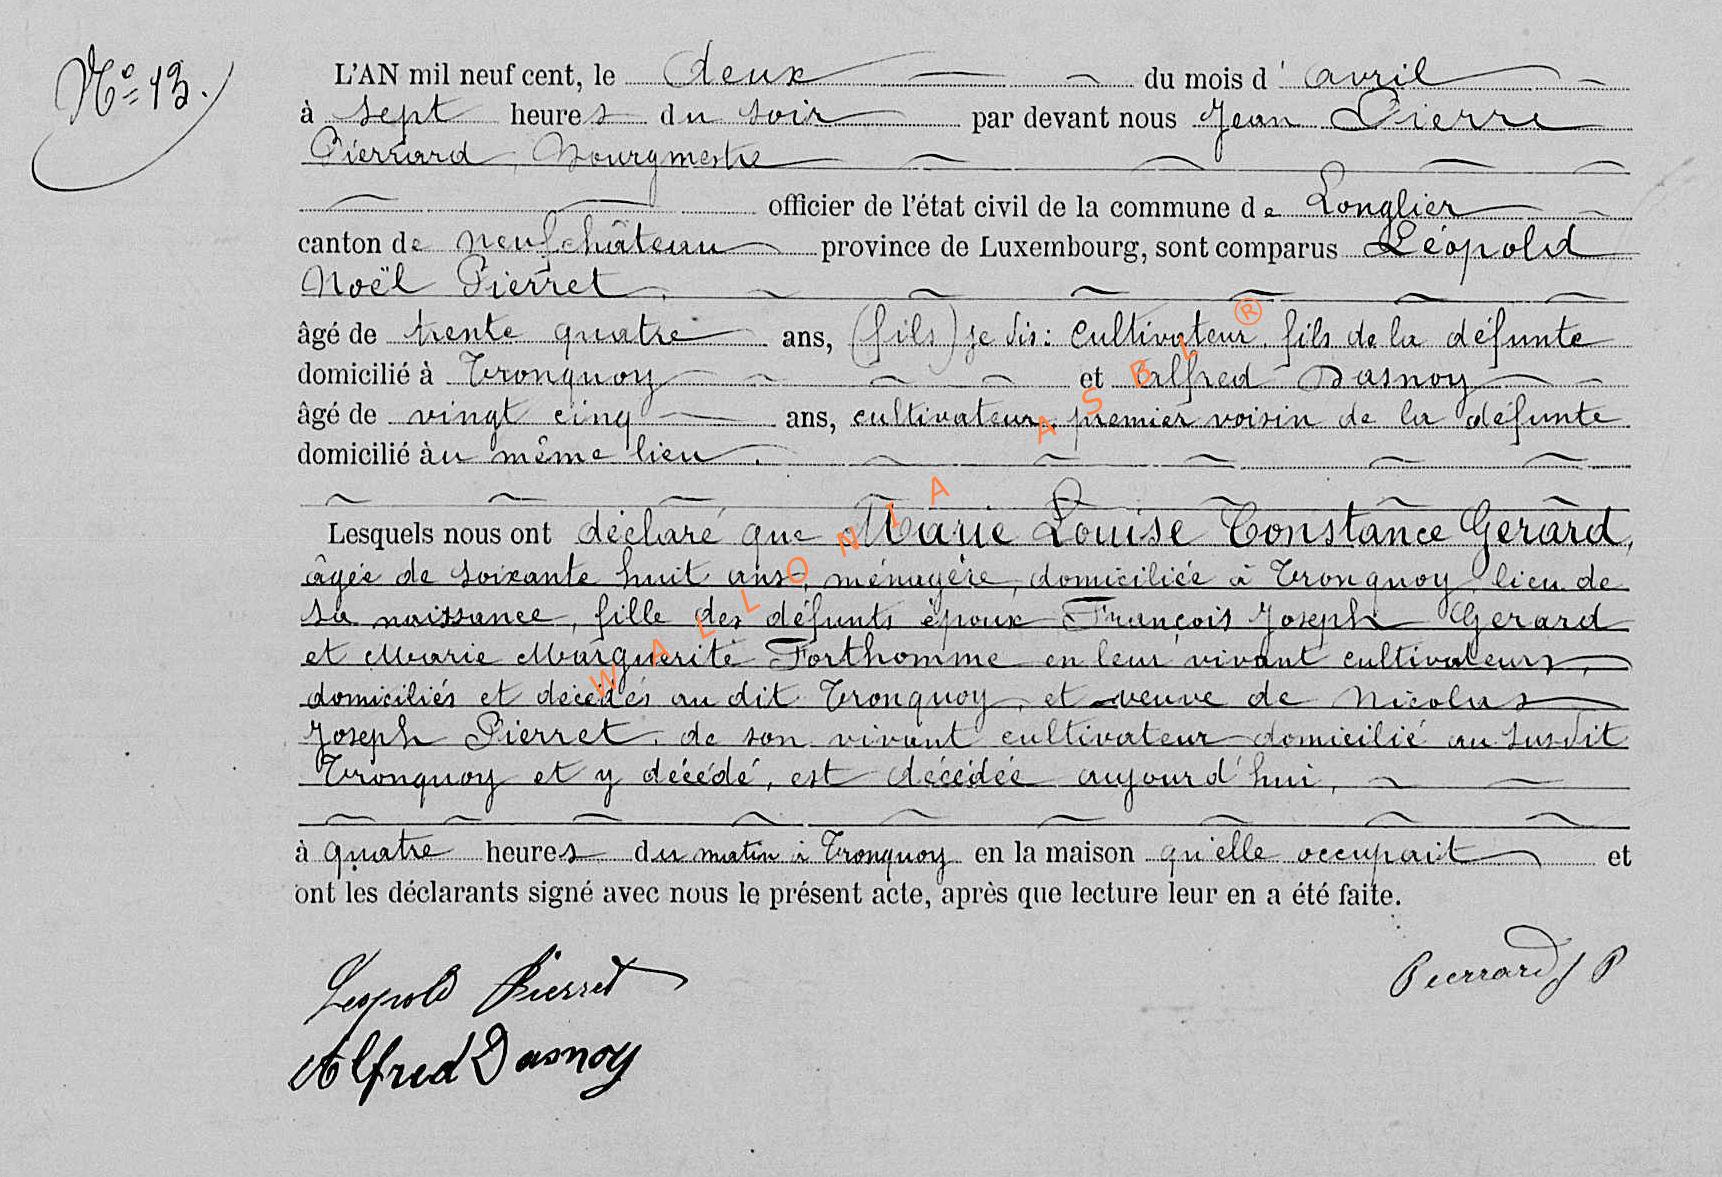 Nº 13.
L'AN mil neuf cent, le deux du mois d'avril
à sept heures du soir par devant nous Jean Pierre
Pierrard, Bourgmestre
officier de l'état civil de la commune de Longlier
canton de Neufchâteau province de Luxembourg, sont comparus Léopold
Noël Pierret.
âgé de trente quatre ans, (fils) je dis: cultivateur, fils de la défunte
domicilié à Tronquoy et Alfred Dasnoy
âgé de vingt cinq ans, cultivateur, premier voisin de la défunte
domicilié au même lieu.
Lesquels nous ont déclaré que Marie Louise Constance Gerard,
âgée de soixante huit ans, ménagère, domiciliée à Tronquoy lieu de
sa naissance, fille des défunts époux François Joseph Gerard
et Marie Marguerite Forthomme en leur vivant cultivateurs,
domiciliés et décédés au dit Tronquoy, et veuve de Nicolas
Joseph Pierret, de son vivant cultivateur domicilié au susdit
Tronquoy et y décédé, est décédée aujourd'hui,
à quatre heures du matin à Tronquoy en la maison qu'elle occupait et
ont les déclarants signé avec nous le présent acte, après que lecture leur en a été faite.
Léopold Pierret
Pierrard J P
Alfred Dasnoy
WALLONIA ASBL ®